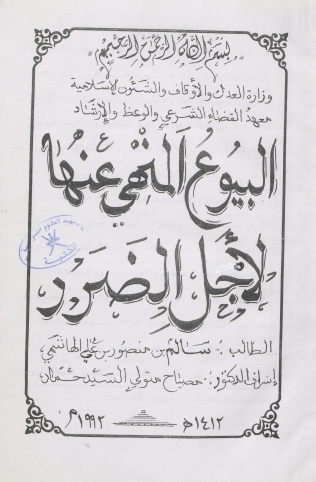 بسم الله الرحمن الرحيم
وزارة العدل والأوقاف والشئون الإسلامية
معهد القضاء الشرعي والوعظ والإرشاد
البيوع المنهي عنها
لأجل الضرر
الطالب: سالم بن منصور بن علي الهاشمي
إشراف الدكتور: مصباح متولي السيد حماد
١٤١٢هـ ١٩٩٢م